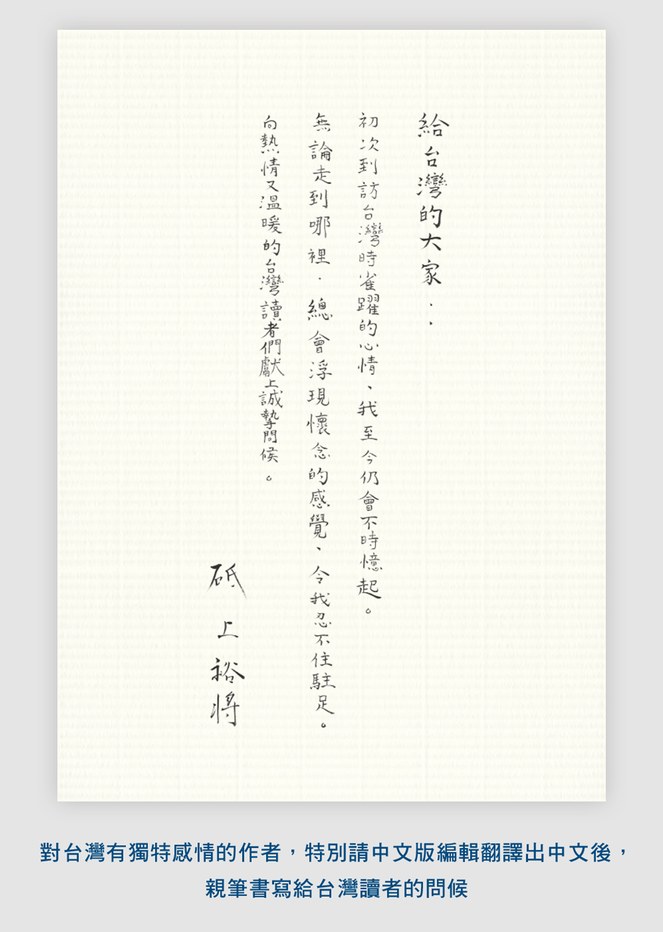 給台灣的大家：
初次到訪台灣時雀躍的心情、我至今仍會不時憶起。
無論走到哪裡、總會浮現懷念的感覺、令我忍不住駐足。
向熱情又溫暖的台灣讀者們獻上誠摯問候。
砥上裕將
對台灣有獨特感情的作者，特別請中文版編輯翻譯出中文後，
親筆書寫給台灣讀者的問候